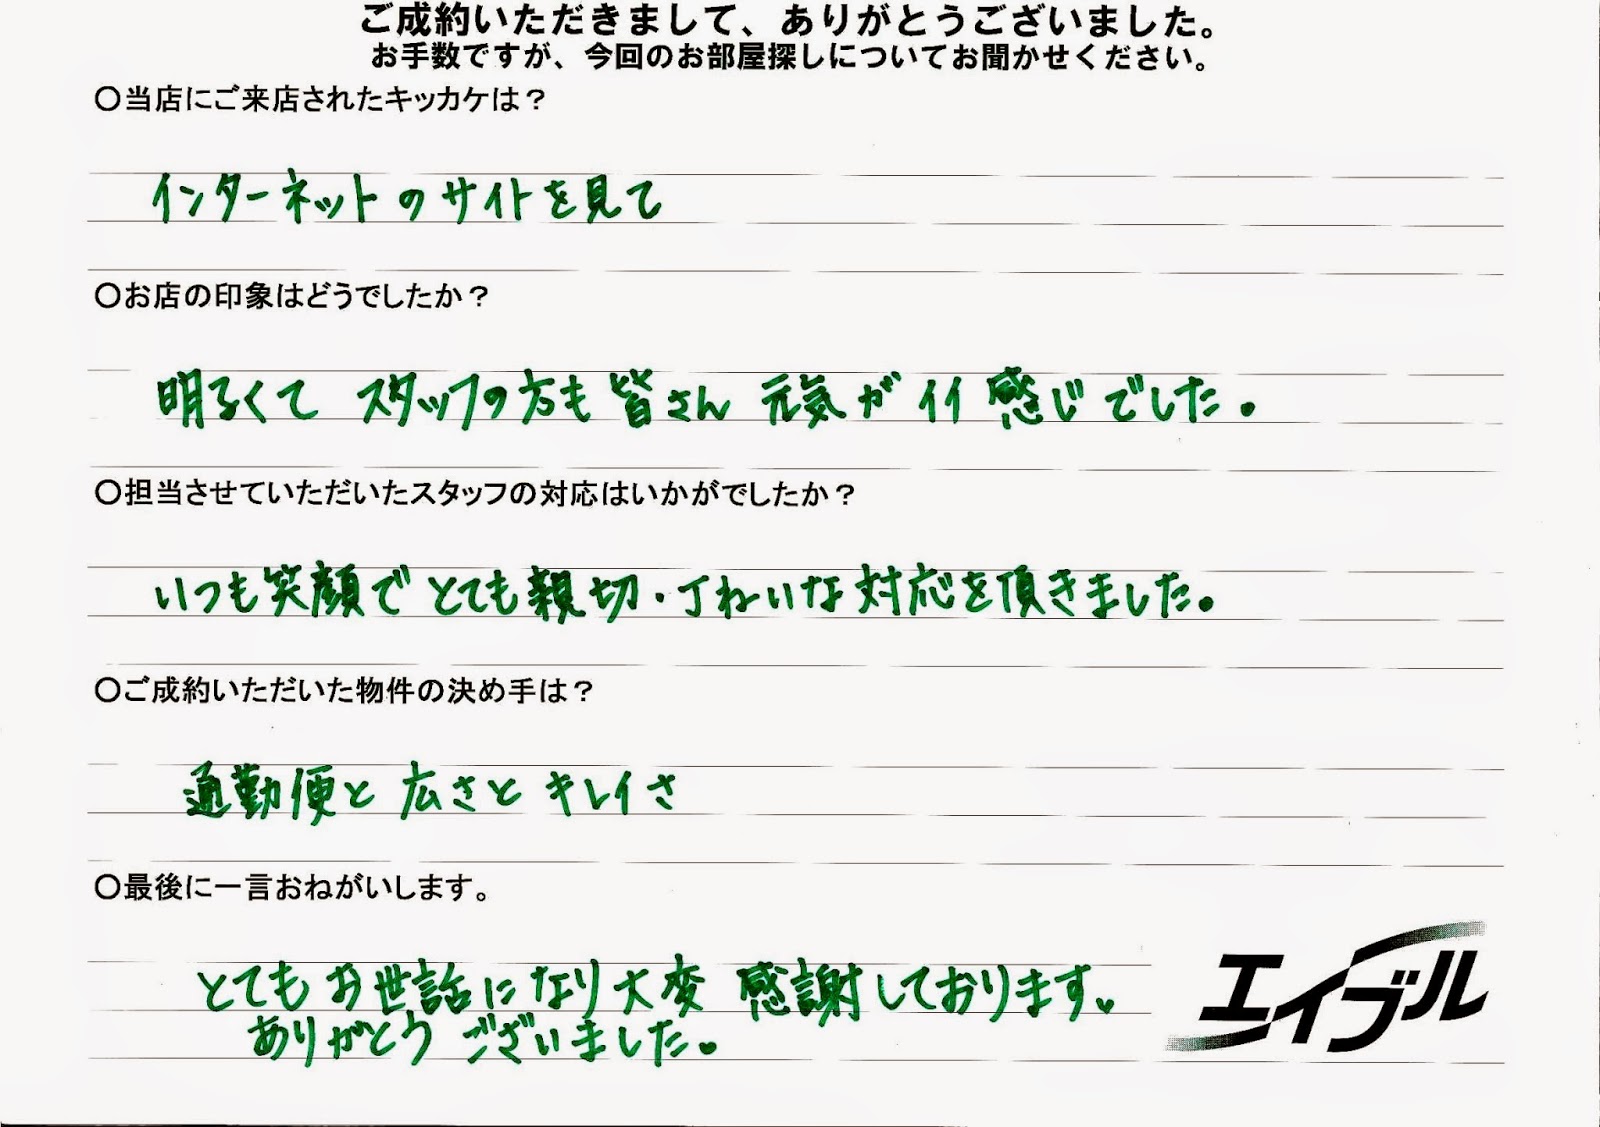 ご成約いただきまして、ありがとうございました。
お手数ですが、今回のお部屋探しについてお聞かせください。
○当店にご来店されたキッカケは？
インターネットのサイトを見て
○お店の印象はどうでしたか？
明るくて スタッフの方も 皆さん 元気が イイ 感じでした。
○担当させていただいたスタッフの対応はいかがでしたか？
いつも笑顔で とても親切・丁ねいな 対応を頂きました。
○ご成約いただいた物件の決め手は？
通勤便と 広さと キレイさ
○最後に一言おねがいします。
とてもお世話になり大変 感謝しております。
ありがとう ございました。
エイブル